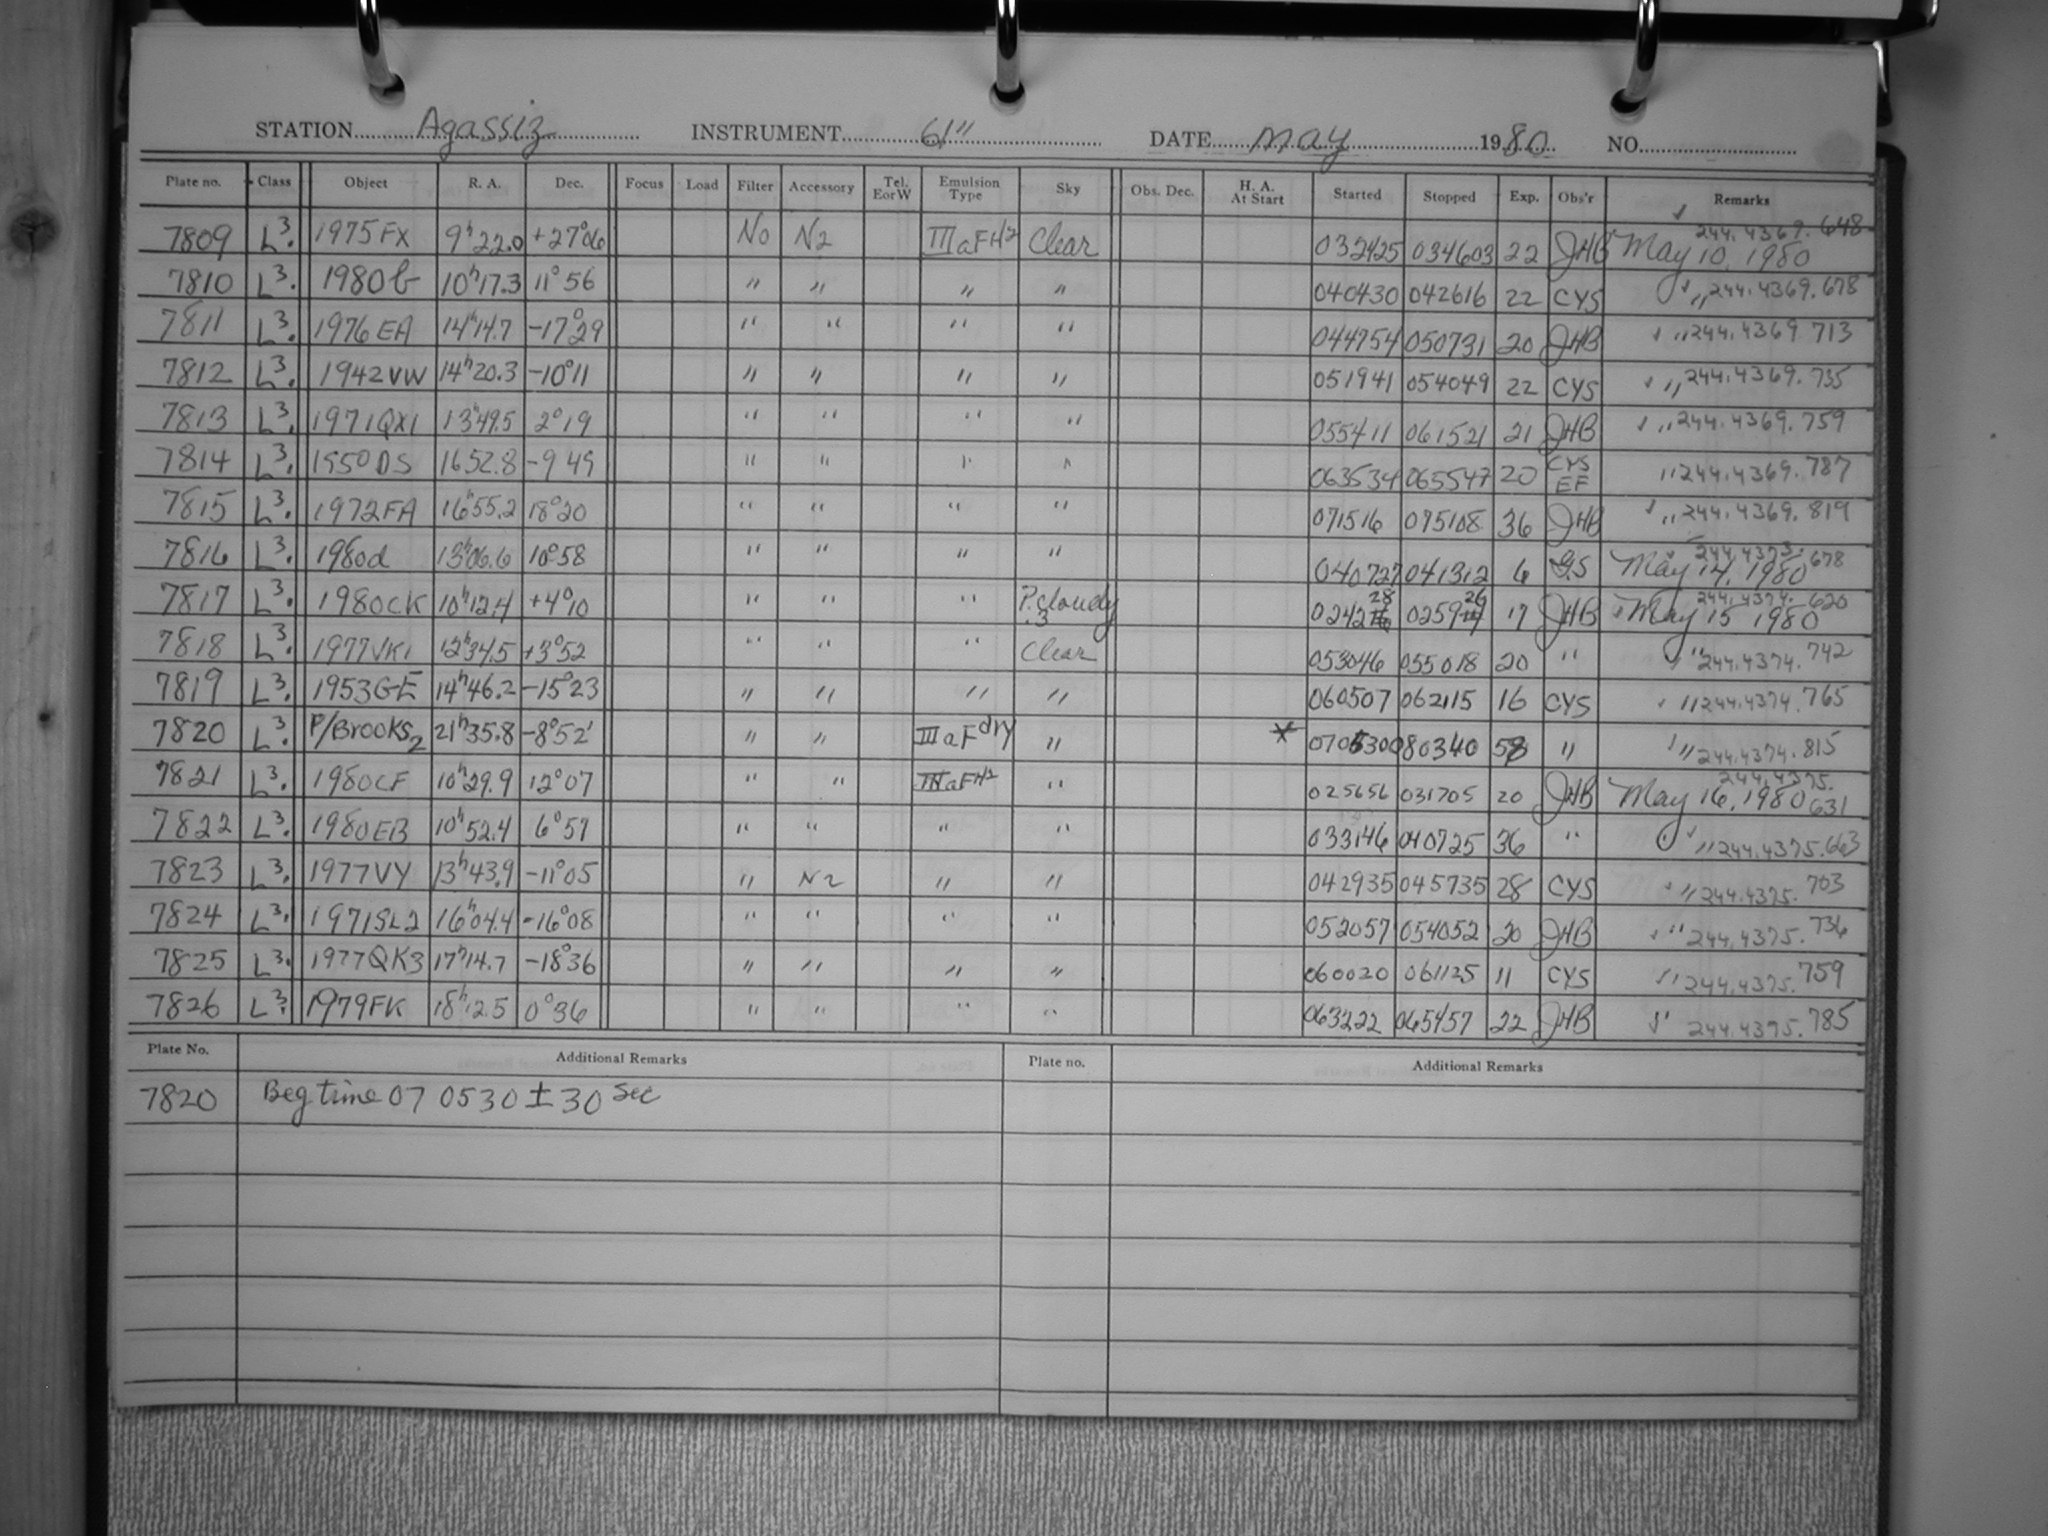 STATION Agassiz INSTRUMENT 61" DATE May 1980 NO.
Plate no. Class Object R. A. Dec. Focus Load Filter Accessory Tel. EorW Emulsion Type Sky Obs. Dec. H. A. At Start Started Stopped Exp. Obs'r Remarks
7809 L3. 1975FX 9h22.0 +27°06 No N2 IIIaFH2 Clear 032425 034603 22 JHB May 10, 1980 244.4369.648
7810 L3. 1980b 10h17.3 11°56 " " " " 040430 042616 22 CYS " 244.4369.678
7811 L3. 1976EA 14h14.7 -17°29 " " " " 044754 050731 20 JHB " 244.4369.713
7812 L3. 1942VW 14h20.3 -10°11 " " " " 051941 054049 22 CYS " 244.4369.735
7813 L3. 1971QX1 13h49.5 2°19 " " " " 055411 061521 21 JHB " 244.4369.759
7814 L3. 1950DS 1652.8 -9 49 " " " " 063534 065547 20 CYS EF " 244.4369.787
7815 L3. 1972FA 16h55.2 18°20 " " " " 071516 075108 36 JHB " 244.4369.819
7816 L3. 1980d 13h06.6 10°58 " " " " 040727 041312 6 G.S May 14, 1980 244.4373.678
7817 L3. 1980CK 10h12.4 +4°10 " " " P.cloudy .3 024228 025926 17 JHB May 15 1980 244.4374.620
7818 L3. 1977VK1 12h34.5 +3°52 " " " Clear 053046 055018 20 " " 244.4374.742
7819 L3. 1953GE 14h46.2 -15°23 " " " " 060507 062115 16 CYS " 244.4374.765
7820 L3. P/Brooks2 21h35.8 -8°52' " " IIIaF dry " * 070530 080340 58 " " 244.4374.815
7821 L3. 1980CF 10h29.9 12°07 " " IIIaFH2 " 025656 031705 20 JHB May 16, 1980 244.4375.631
7822 L3. 1980EB 10h52.4 6°57 " " " " 033146 040725 36 " " 244.4375.663
7823 L3. 1977VY 13h43.9 -11°05 " N2 " " 042935 045735 28 CYS " 244.4375.703
7824 L3. 1971SL2 16h04.4 -16°08 " " " " 052057 054052 20 JHB " 244.4375.736
7825 L3. 1977QK3 17h14.7 -18°36 " " " " 060020 061125 11 CYS " 244.4375.759
7826 L3. 1979FK 18h12.5 0°36 " " " " 063222 065457 22 JHB " 244.4375.785
Plate No. Additional Remarks Plate no. Additional Remarks
7820 Beg time 07 0530 ± 30 sec